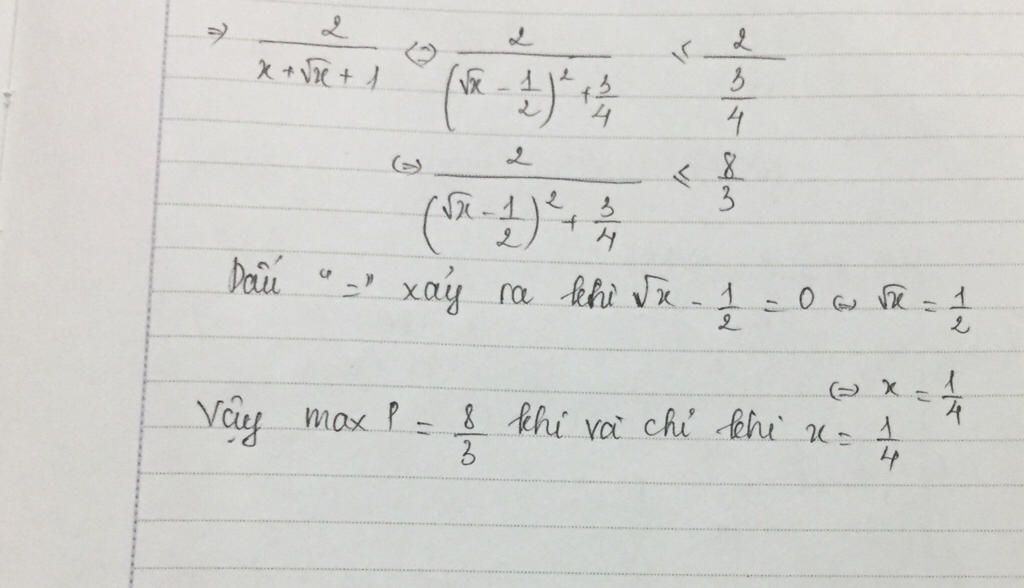 ⇒ 2/(x + √x + 1) ⇔ 2/((√x - 1/2)² + 3/4) ≤ 2/(3/4)
⇔ 2/((√x - 1/2)² + 3/4) ≤ 8/3
Dấu "=" xảy ra khi √x - 1/2 = 0 ⇔ √x = 1/2
⇔ x = 1/4
Vậy max P = 8/3 khi và chỉ khi x = 1/4